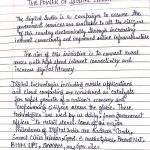 THE POWER OF DIGITAL INDIA
The Digital India is a campaign to assure the
government services are available to all the citizens
of the country electronically through increasing
internet connectivity and improved online infrastructure
The aim of this initiative is to connect rural
areas with high speed internet connectivity and
increase digital literacy.
Digital technologies including mobile applications
and cloud computing are considered as catalysts
for rapid growth of a nation's economy and
empowering citizens across the globe. These
technologies are used by us daily, from
offices. To retail stores. Some of the major
initiatives of Digital India are Aadhaar Cards,
BHIM UPI,